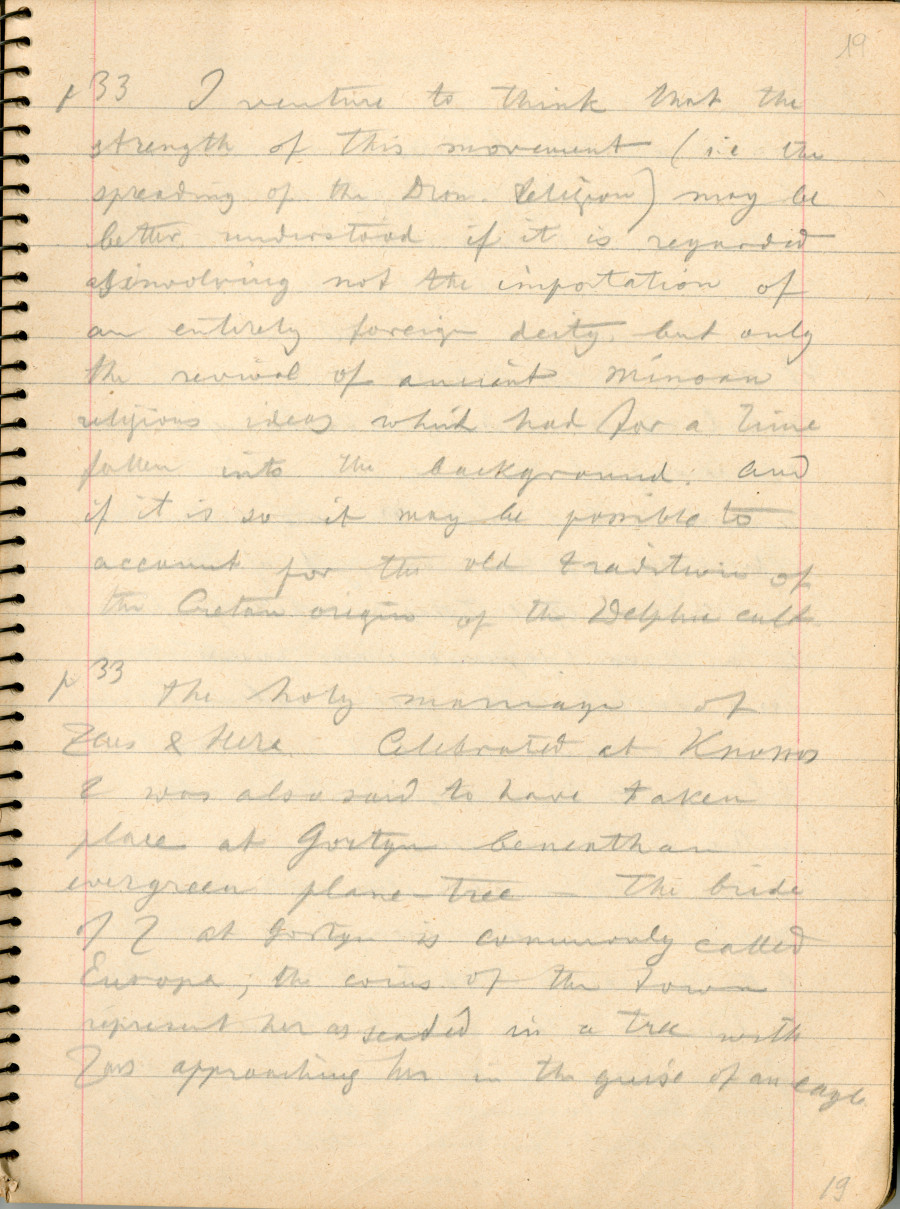 19
p 33 I venture to think that the
strength of this movement (i.e the
spreading of the Dion. Religion) may be
better understood if it is regarded
as involving not the importation of
an entirely foreign deity, but only
the revival of ancient Minoan
religious ideas which had for a time
fallen into the background. And
if it is so it may be possible to
account for the old tradition of
the Cretan origin of the Delphic cult
p 33 The holy marriage of
Zeus & Hera Celebrated at Knossos
& was also said to have taken
place at Gortyn beneath an
evergreen plane-tree — The bride
of Z at Gortyn is commonly called
Europa; the coins of the town
represent her as seated in a tree with
Zeus approaching her in the guise of an eagle
19